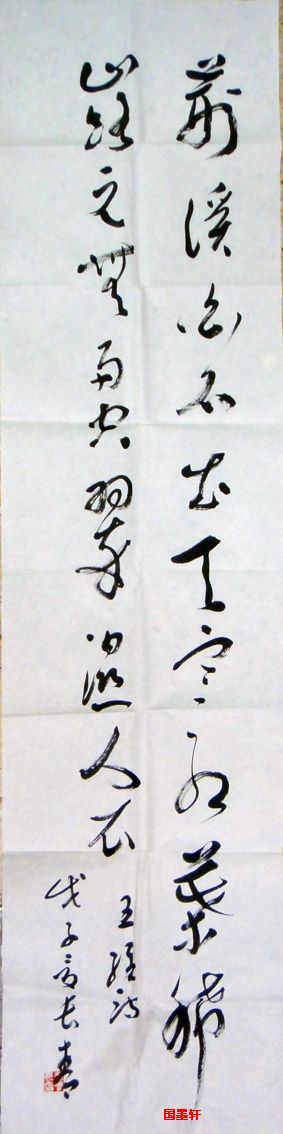 荆溪白石出天寒红叶稀
山路元无雨空翠湿人衣
王维诗
戊子高长青
国墨轩